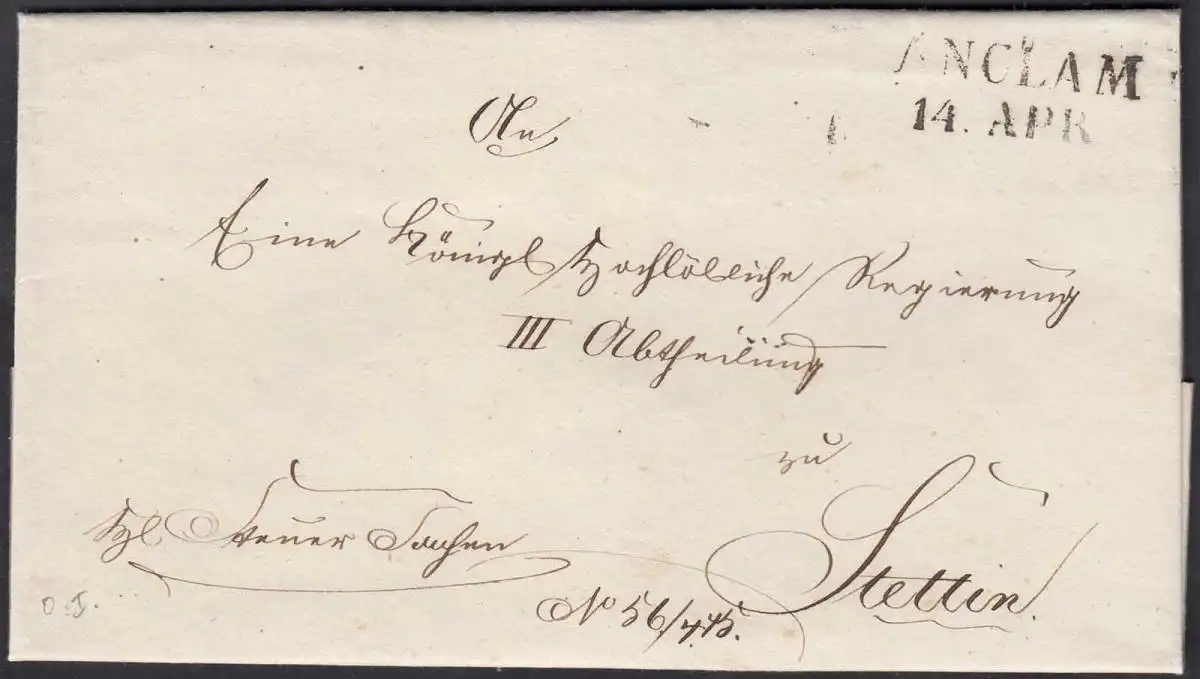 ANCLAM
14. APR
An
Eine Königl Hochlöbliche Regierung
III Abtheilung
zu
Stettin
Steuer Sachen
No 56/